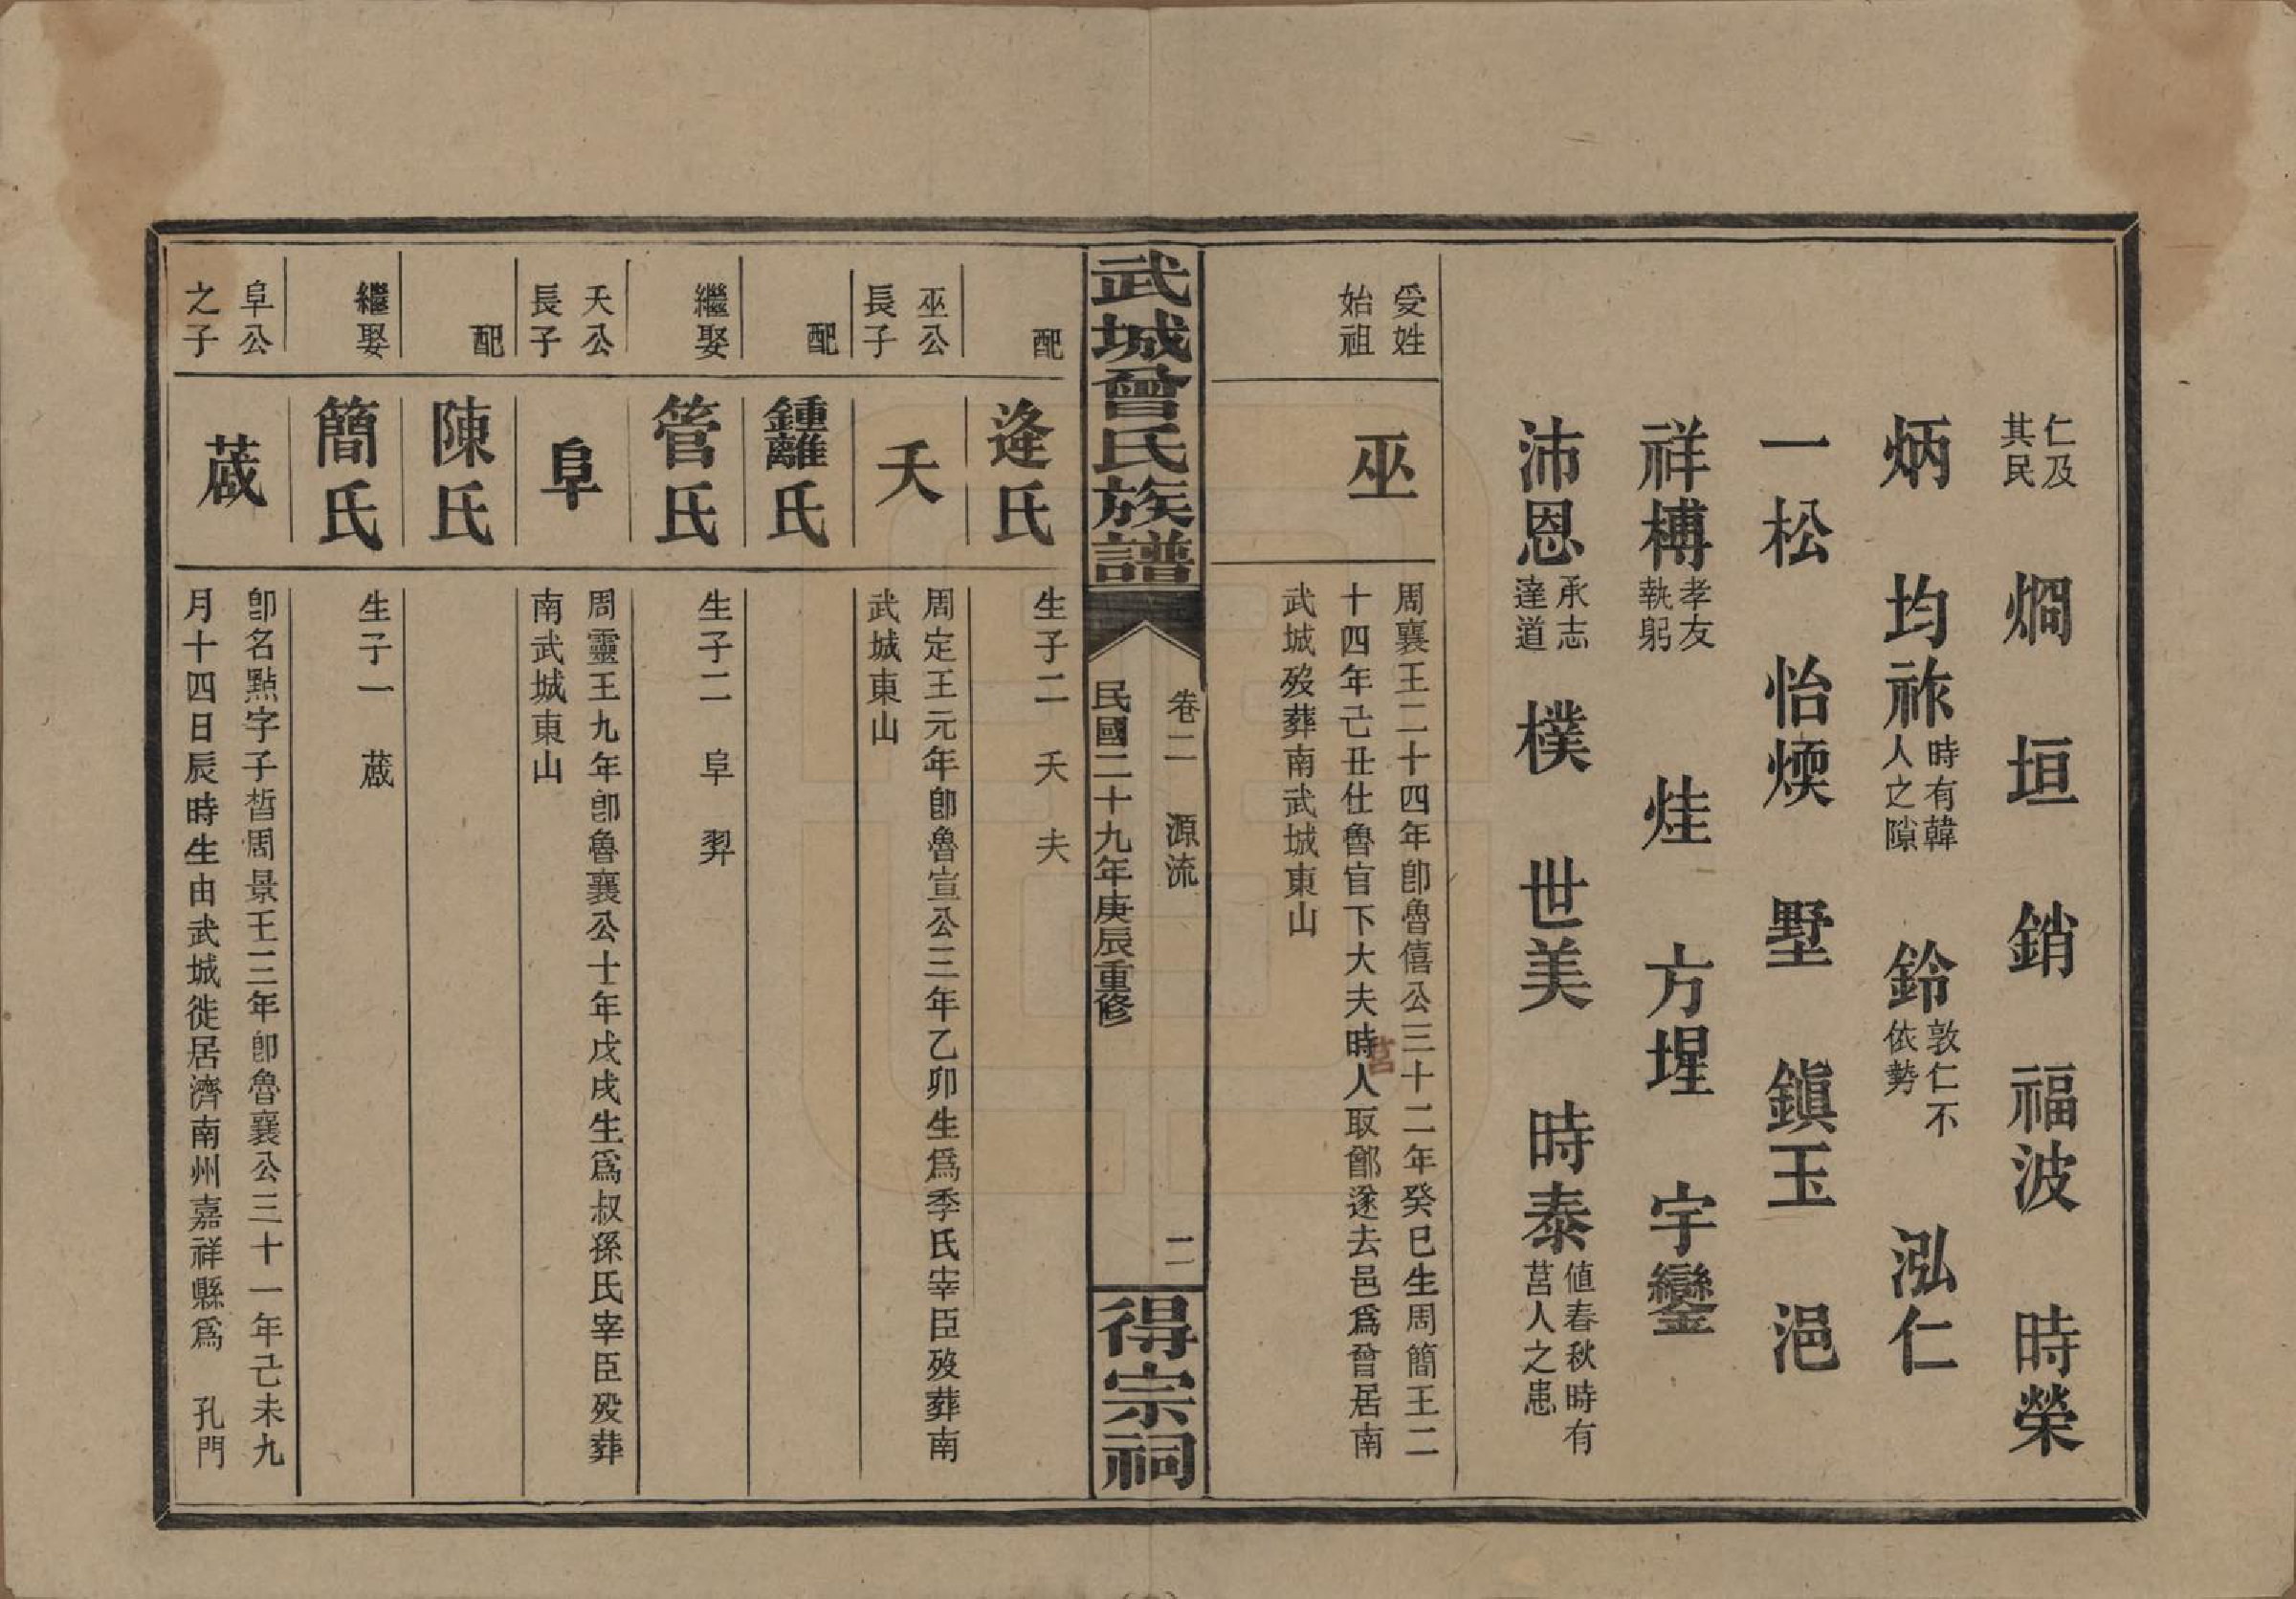 仁及其民 烱 垣 銷 福波 時榮
炳 均祚 時有韓人之隙 鈴 敦仁不依勢 泓仁
一松 怡煗 墅 鎭玉 浥
祥榑 孝友執躬 烓 方埕 宇鑾
沛恩 承志達道 樸 世美 時泰 値春秋時有莒人之患
受姓始祖
巫
周襄王二十四年卽魯僖公三十二年癸巳生周簡王二
十四年己丑仕魯官下大夫時人取鄫遂去邑爲曾居南
武城歿葬南武城東山
莒
武城曾氏族譜
卷二 源流
二
民國二十九年庚辰重修
得宗祠
配
逄氏
生子二 夭 夫
巫公長子
夭
周定王元年卽魯宣公三年乙卯生爲季氏宰臣歿葬南
武城東山
配
鍾離氏
繼娶
管氏
生子二 阜 羿
夭公長子
阜
周靈王九年卽魯襄公十年戊戌生爲叔孫氏宰臣歿葬
南武城東山
配
陳氏
繼娶
簡氏
生子一 蒧
阜公之子
蒧
卽名點字子晳周景王三年卽魯襄公三十一年己未九
月十四日辰時生由武城徙居濟南州嘉祥縣爲 孔門